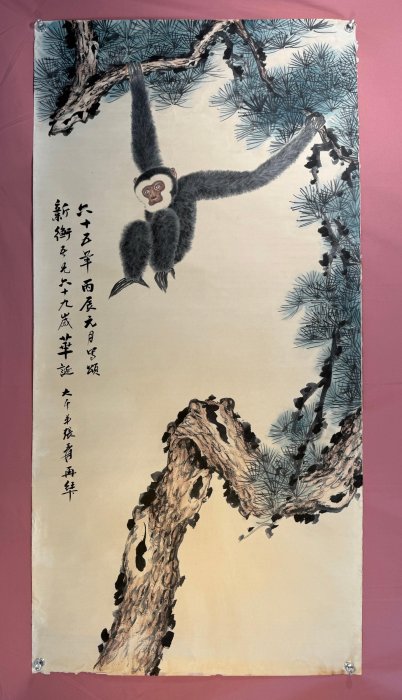 六十五年丙辰元月写頌
新衡吾兄六十九歳華誕 大千弟張爰再拜